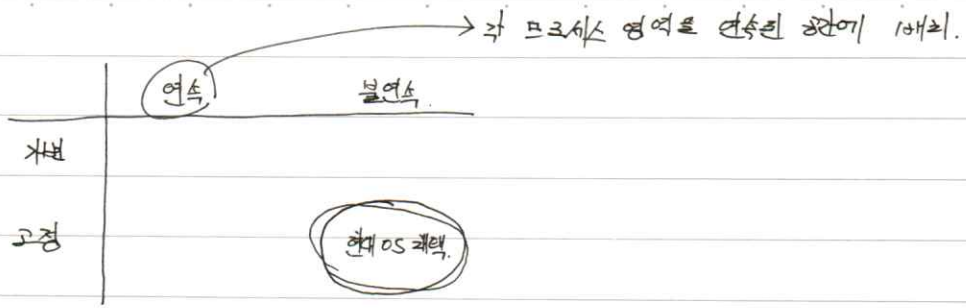 → 각 프로세스 영역을 연속된 공간에 배치.
연속 불연속.
가변
고정 현대 OS 채택.